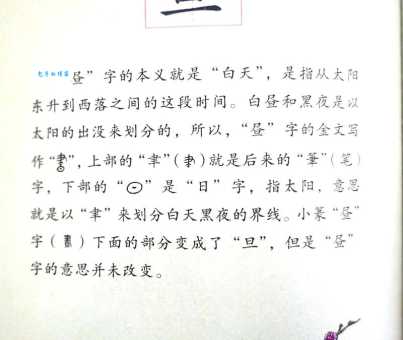 昼”字的本义就是“白天”，是指从太阳
东升到西落之间的这段时间。白昼和黑夜是以
太阳的出没来划分的，所以，“昼”字的金文写
作“”，上部的“聿”（）就是后来的“筆”（笔）
字，下部的“”是“日”字，指太阳，意思
就是以“聿”来划分白天黑夜的界线。小篆“昼”
字（）下面的部分变成了“旦”，但是“昼”
字的意思并未改变。